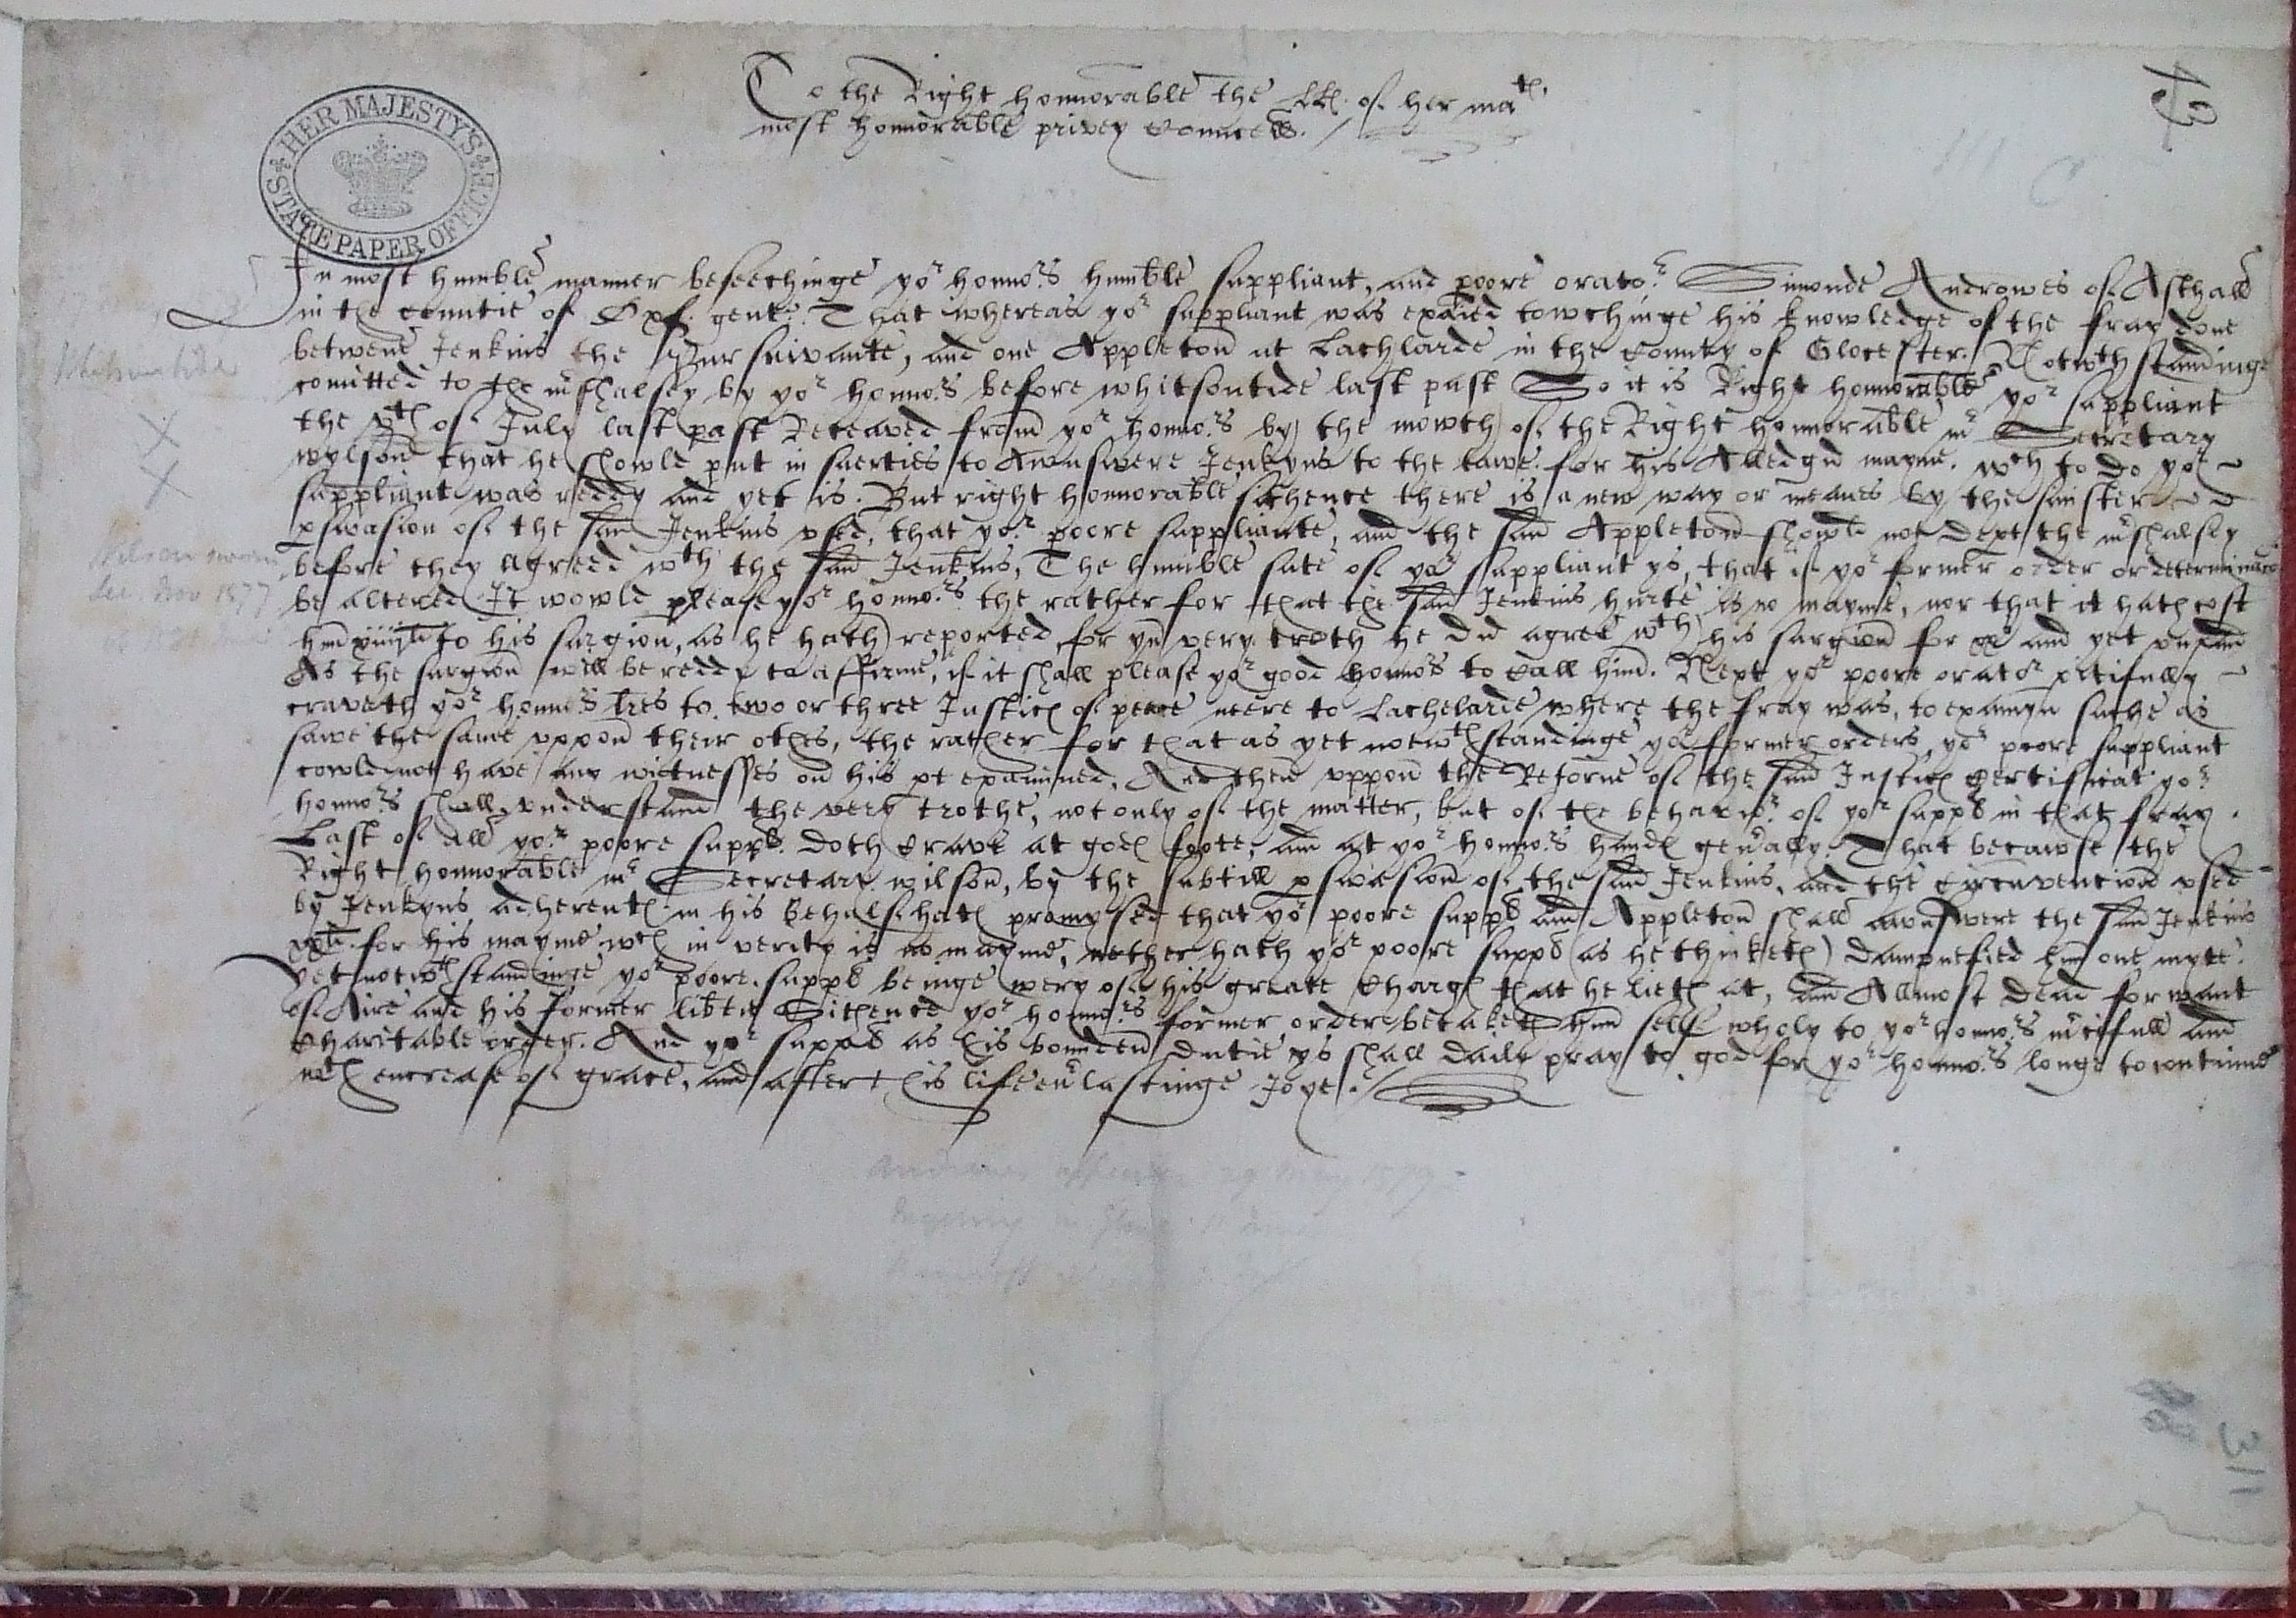 To the Right honnorable the LL of her matꝭ
most honnorable privey Councell./
13
HER MAJESTY'S
STATE PAPER OFFICE
In most humble manner beseechinge yor honnors humble suppliant, and poore orator Simonde Androwes of Asthall
in the countie of Oxf. gent: That whereas yor suppliant was exaied towchinge his knowledge of the fray done
betwene Jenkins the Pursuivante, and one Appleton at Lachlade in the County of Glocester. Notwthstandinge
comitted to the mrshalsey by yor honnors before whitsontide last past So it is Right honnorable yor suppliant
the vth of July last past Receaved from yor honnors by the mowth of the Right honnorable mr Secretary
wylson that he showld put in suerties to Awnswere Jenkyns to the lawe for his Alledgid mayme. wch to do yor
suppliant was reddy and yet is. But right honnorable sithence there is a new way or meanes by the sinister
pswasion of the said Jenkins vsed, that yor poore suppliante, and the said Appleton showld not dept the mrshalsey
before they agreed wth the said Jenkins, The humble sute of yor suppliant ys, that if yor former order or determinacion
be altered It wowld please yor honnors the rather for that the said Jenkins hurte is no mayme, nor that it hath cost
him to his surgion, as he hath reported for yn very troth he did agree wth his surgion for and yet vnpaid
As the surgion will be reddy to affirme, if it shall please yor good honnors to Call him. Next yor poore orator pitifully
craveth yor honnors lres to two or three Justicꝭ of peace neere to Lachelade where the fray was, to examyn suche as
sawe the same vppon their othes, the rather for that as yet notwthstandinge yor former orders, yor poore suppliant
cowld not have any wittnesses on his pt examined. And then vppon the Retorne of the said Justicꝭ Certificat yor
honnors shall vnderstand the very trothe, not only of the matter, but of the behavior of yor suppt in that fray.
Last of all yor poore suppt doth Crave at godꝭ foote, and at yor honnors handꝭ gen'ally. That becawse the
Right honnorable mr Secretary wilson, by the subtill pswasion of the said Jenkins, and the Cyrcumvention vsed
by Jenkyns adherentꝭ in his behalf hath promysed that yor poore suppt and Appleton shall awnswere the said Jenkins
xxli. for his mayme wch in verity is no mayme, nether hath yor poore suppt (as he thinketh) dampnefied him one myte.
Yet notwthstandinge yor poore suppt beinge wery of his greate Chargꝭ that he lieth at, and Allmost dead for want
of Aire and his former libtie Sithence yor honnors former order betaketh him self wholy to yor honnors m'cifull and
Charitable order. And yor suppt as his bounden dutie ys shall daily pray to god for yor honnors longe to continue
wth encrease of grace, and after this life eu'lastinge Joye./
Whitsuntide
Wilson sworn
Sec. Nov 1577
29 May 1579
311